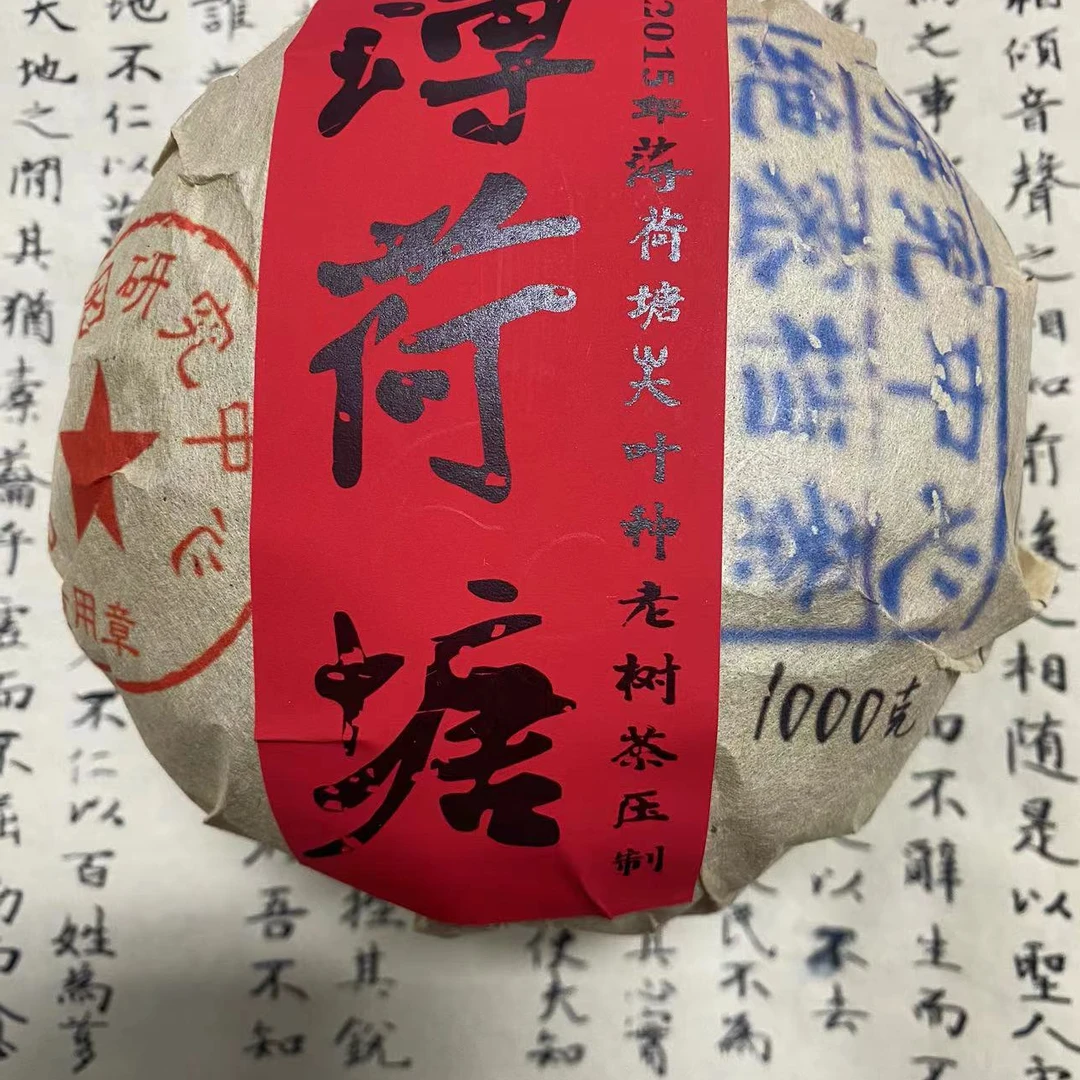 薄荷塘
2015年薄荷塘尖叶种老树茶压制
研究中心
用章
研究中心
绝密
1000克
相傾音聲之相和前後之相隨是以聖人
為之事
而不辭生而不
以不去
民不為
挫其銳
吾不知
誰
地不仁以萬
不仁以百姓為芻
天地之間其猶橐籥乎虛而不屈